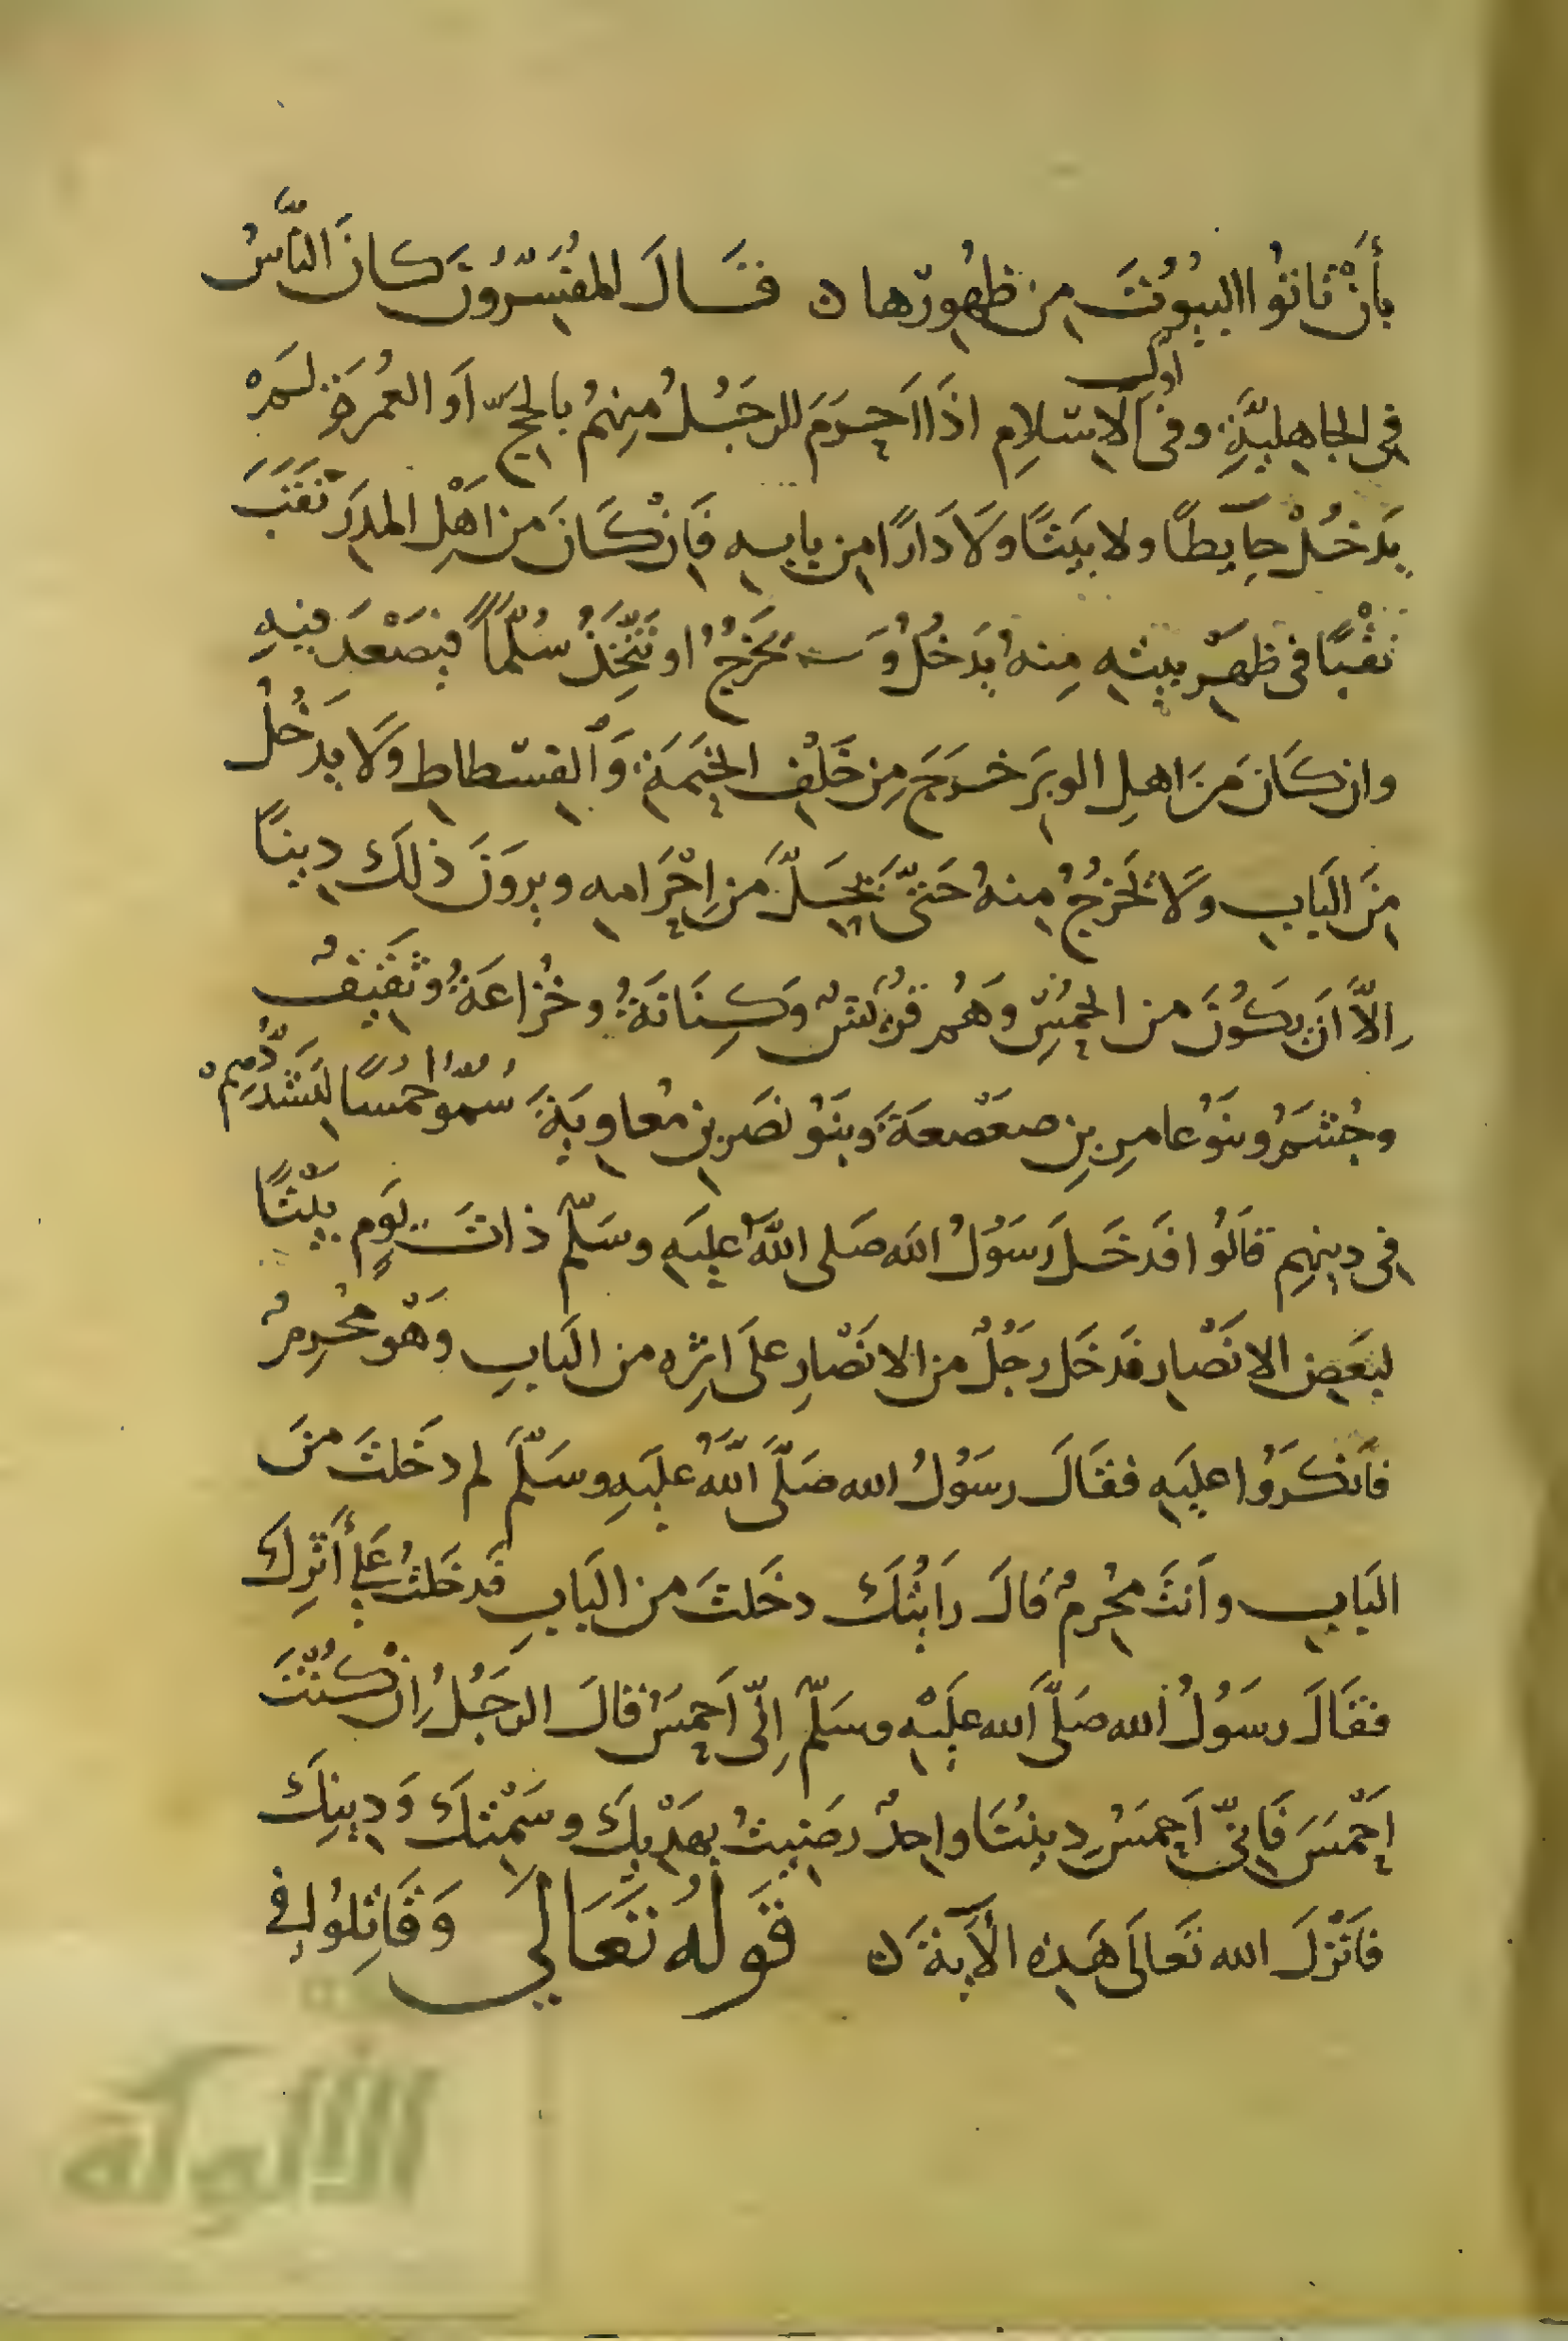 بأَنْ تَاتوُا البيُوُتَ مِن ظهُورِها ن فقَالَ المفُسّرُونَ كانَ النَّاسُ
فِي الجاهِليَّةِ وفي اوّل الاسْلامِ اذَا اَحرَمَ الرجَُلُ مِنهمُ بالحجّ اَو العُمرَةِ لَمْ
يَدخُلْ حَايطًا ولا بيَتًا وَلَا دَارًا مِن بابِهِ فَانْ كَانَ مِن اَهْلِ المدَرِ نَقَبَ
نَقْبًا في ظهرِ بيتهِ مِنهُ يَدخُلُ وَ يَخرُجُ او يَتّخِذُ سُلّمًا فيَصْعَدُ فيِهِ
وان كَانَ مِن اهلِ الوبرَ خرَجَ مِن خَلْفِ الخَيمَةِ وَالفسْطاطِ وَلَا يدَخُلُ
مِنَ البَابِ وَلَا يَخرُجُ مِنهُ حَتىَّ يَحِلَّ مِن اِحْرَامهِ ويرَونَ ذلكَ دِينًا
اِلاَّ اَن يكَُونَ من الحُمْسِ وَهُم قرُيَشٌ وَكِنَانَةُ وخُزاعَةُ وثَقَيِفٌ
وجُشَمُ وبنَوُ عامِرِ بنِ صعَصْعَةَ وَبنَوُ نصَرِ بنِ مُعاوِيَةَ سُمّوُا حُمسًا لتَِشَدُّدِهِمْ
فِي دِينهِم قالَوُا فَدخَلَ رَسوُلُ الله صَلى اللهُ عليَهِ وسَلّم ذاتَ يَومٍ بيَتًا
لبَعضِ الانَصْارِ فدَخَل رجَُلٌ من الانَصْارِ علَى اثِرهِ من البَابِ وَهُو مُحرِمٌ
فاَنكرَوُا عليَهِ فقاَلَ رسَوُلُ الله صَلَّى اللهُ عليَهِ وسَلّمَ لم دخَلتَ مِنَ
البَابِ واَنتَ مُحْرِمٌ قَالَ راَيتُكَ دخَلتَ من البَابِ فَدخَلتُ علَى أَثَرِكَ
فقَالَ رسَوُلُ الله صَلَّى الله علَيْهِ وسَلّم اِنّى اَحمسَُ فقالَ الرجَلُ اِنْ كنُتَ
اَحْمَسَ فَانِّى اَحمسَُ دِينُنَا واحِدٌ رضَيِتُ بهَدْيِكَ وسَمْتِكَ وَدِينِكَ
فاَنَزْلَ الله تعَالَى هَذِهِ الأيةَ ن قَولُهُ تَعَالَى وَقَاتِلوُا في
الألوكة